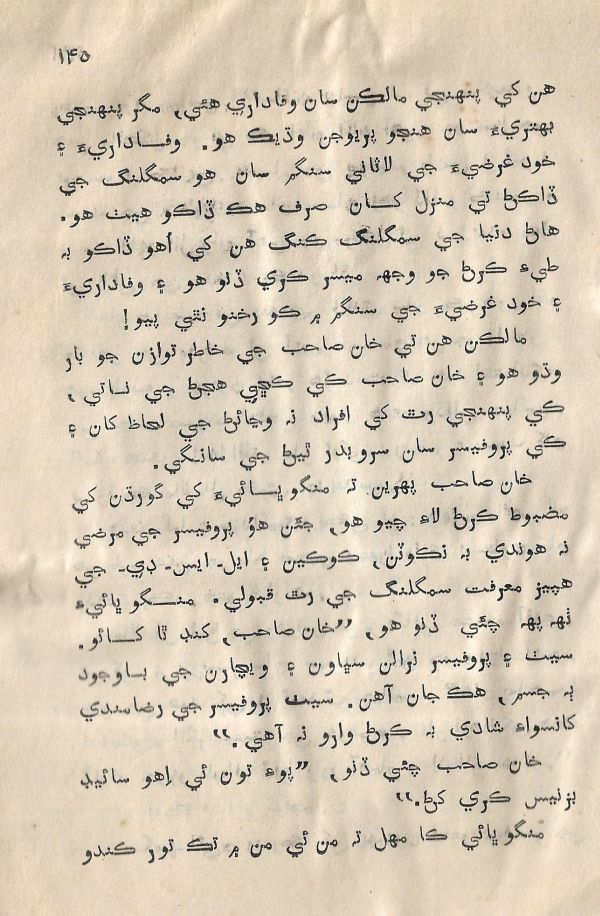 ۱۴۵
هن کي پنهنجي مالڪن سان وفاداري هئي، مگر پنهنجي
بهتريءَ سان هنجو پريوجن وڌيڪ هو. وفاداريءَ ۽
خود غرضيءَ جي لاثاني سنگم سان هو سمگلنگ جي
ڏاڪڻ تي منزل کان صرف هڪ ڏاڪو هيٺ هو.
هاڻ دنيا جي سمگلنگ ڪنگ هن کي اُهو ڏاڪو بہ
طيءَ ڪرڻ جو وجهہ ميسر ڪري ڏنو هو ۽ وفاداريءَ
۽ خود غرضيءَ جي سنگم ۾ ڪو رخنو نٿي پيو!
مالڪن هن تي خان صاحب جي خاطر توازن جو بار
وڌو هو ۽ خان صاحب کي ڪڇي هجڻ جي ناتي،
ڪي پنهنجي رٿ کي افراد نہ وڃائڻ جي لحاظ کان ۽
ڪي پروفيسر سان سروبدر ٿيڻ جي سانگي.
خان صاحب پهرين تہ منگو ڀائيءَ کي گورڌن کي
مضبوط ڪرڻ لاءِ چيو هو، جئن هوُ پروفيسر جي مرضي
نہ هوندي بہ نڪوٽن، ڪوڪين ۽ ايل۔ ايس۔ ڊي۔ جي
هپيز معرفت سمگلنگ جي رٿ قبولي. منگو ڀائيءَ
ٺهہ پهہ چئي ڏنو هو، ”خان صاحب، کنڊ ٿا کائو.
سيٺ ۽ پروفيسر نرالن سڀاون ۽ ويچارن جي باوجود
ٻہ جسم، هڪ جان آهن. سيٺ پروفيسر جي رضامندي
کانسواءِ شادي بہ ڪرڻ وارو نہ آهي.“
خان صاحب چئي ڏنو، ”پوءِ تون ئي اِهو سائيڊ
بزنيس ڪري کڻ.“
منگو ڀائي ڪا مهل تہ من ئي من ۾ تڪ تور ڪندو